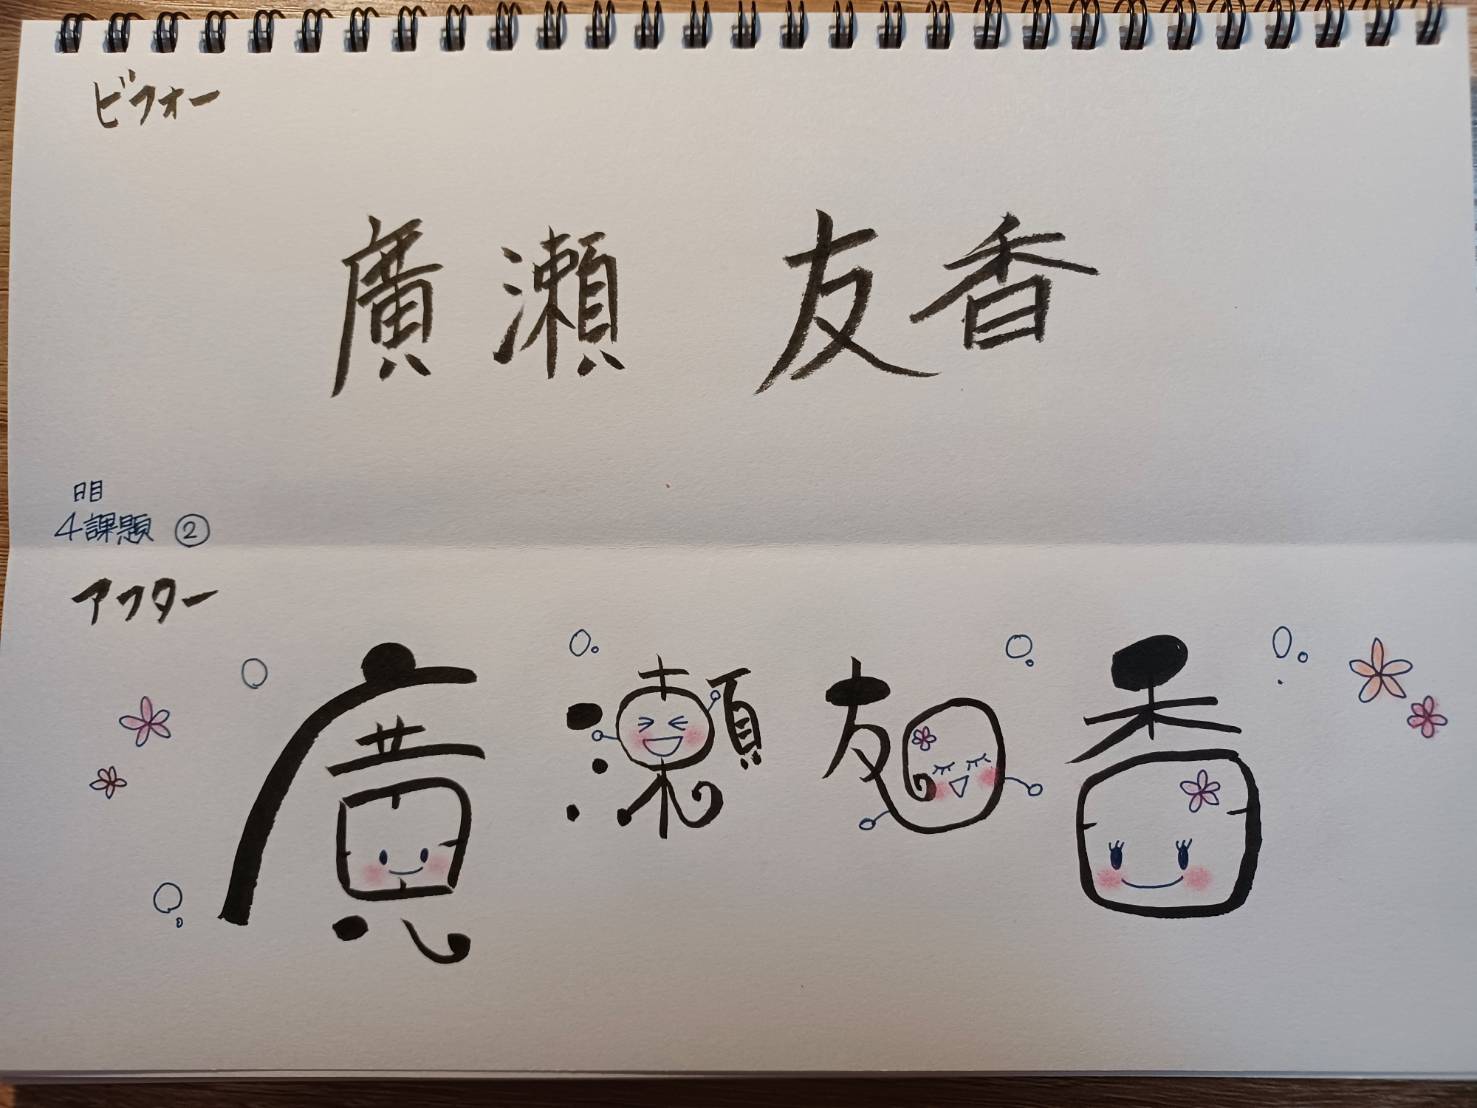 ビフォー
廣瀬 友香
日目
4課題 ②
アフター
廣瀬友香